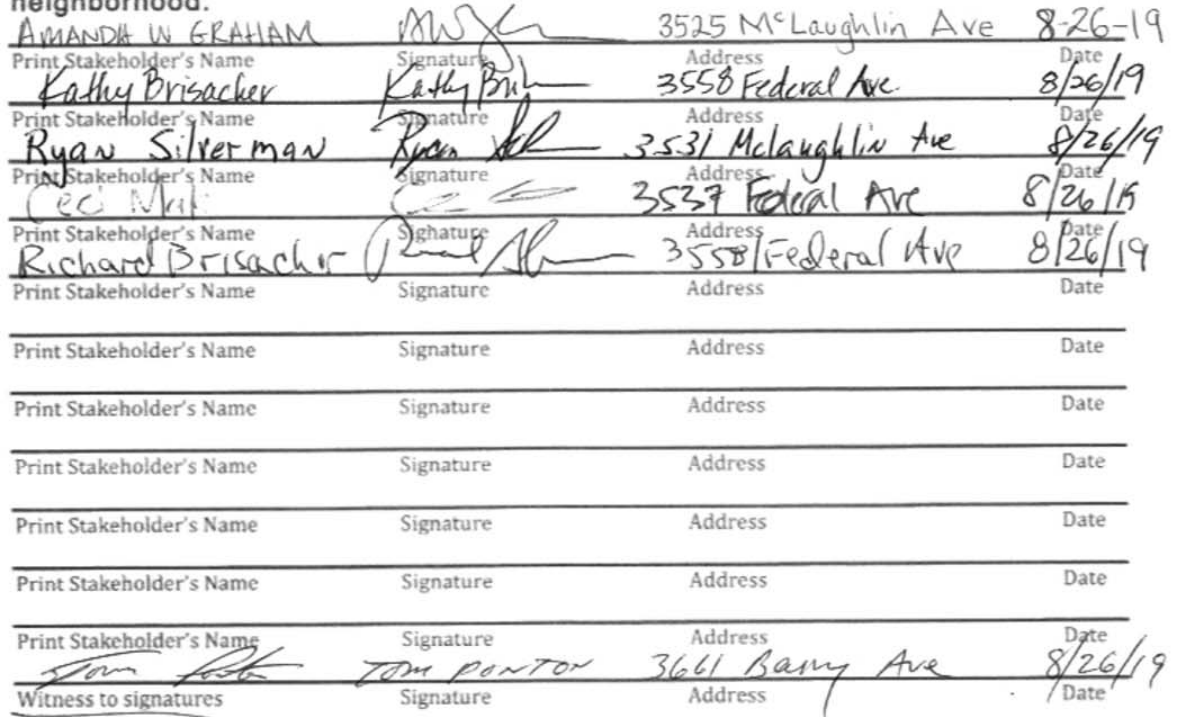 neighborhood.
AMANDA W GRAHAM 3525 McLaughlin Ave 8-26-19
Print Stakeholder's Name Signature Address Date
Kathy Brisacher Kathy 3558 Federal Ave. 8/26/19
Print Stakeholder's Name Signature Address Date
Ryan Silverman Ryan 3531 Mclaughlin Ave 8/26/19
Print Stakeholder's Name Signature Address Date
Ceci 3537 Federal Ave 8/26/19
Print Stakeholder's Name Signature Address Date
Richard Brisacher 3558 Federal Ave 8/26/19
Print Stakeholder's Name Signature Address Date
Print Stakeholder's Name Signature Address Date
Print Stakeholder's Name Signature Address Date
Print Stakeholder's Name Signature Address Date
Print Stakeholder's Name Signature Address Date
Print Stakeholder's Name Signature Address Date
Print Stakeholder's Name Signature Address Date
Tom TOM PONTON 3661 Barry Ave 8/26/19
Witness to signatures Signature Address Date